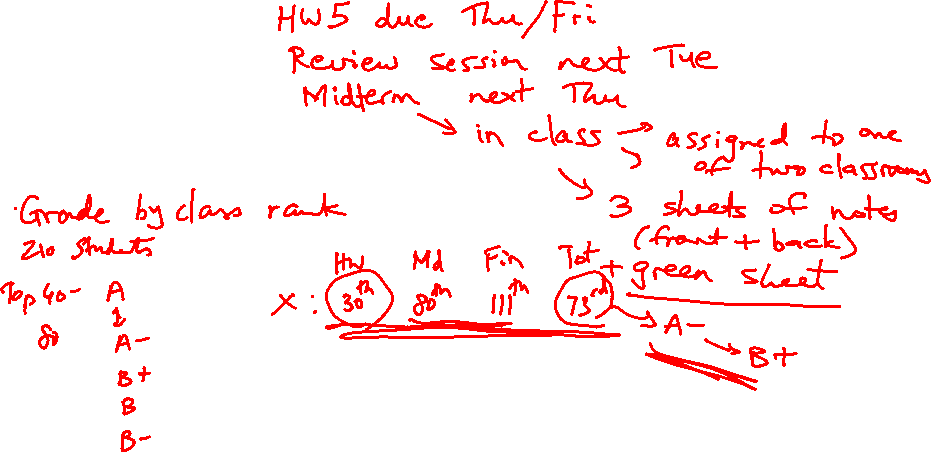 HW5 due Thu/Fri
Review session next Tue
Midterm next Thu
in class
assigned to one
of two classrooms
3 sheets of notes
(front + back)
+ green sheet
Grade by class rank
210 students
Top 40- A
80 A-
B+
B
B-
HW Md Fin Tot
X: 30th 80th 111th 73rd
A-
B+